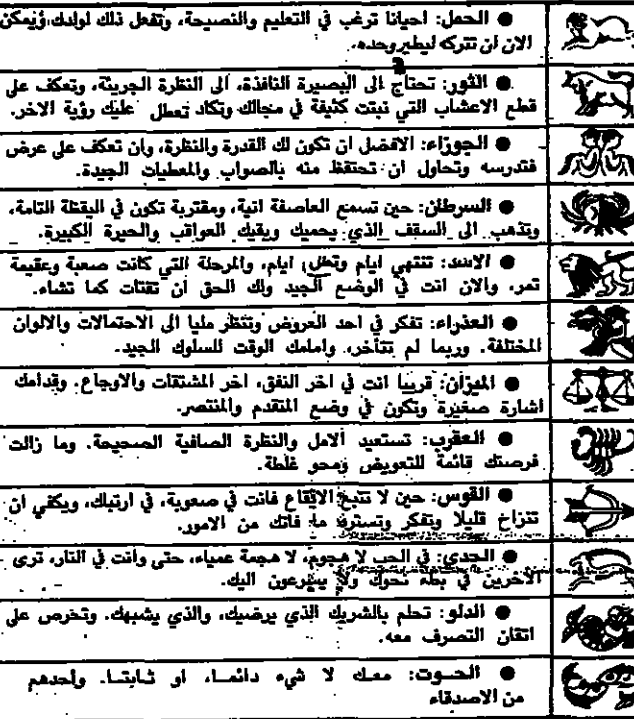 ● الحمل: احيانا ترغب في التعليم والنصيحة، وتفعل ذلك لولدك ويمكن
الان ان تتركه ليطير وحده.
● الثور: تحتاج الى البصيرة النافذة، الى النظرة الجريئة، وتعكف على
قطع الاعشاب التي نبتت كثيفة في مجالك وتكاد تعطل عليك رؤية الاخر.
● الجوزاء: الافضل ان تكون لك القدرة والنظرة، وان تعكف على عرض
فتدرسه وتحاول ان تحتفظ منه بالصواب والمعطيات الجيدة.
● السرطان: حين تسمع العاصفة اتية، ومقتربة تكون في اليقظة التامة،
وتذهب الى السقف الذي يحميك ويقيك العواقب والحيرة الكبيرة.
● الاسد: تنتهي ايام وتطل ايام، والمرحلة التي كانت صعبة وعقيمة
تمر، والان انت في الوضع الجيد ولك الحق ان تقتات كما تشاء.
● العذراء: تفكر في احد العروض وتنظر مليا الى الاحتمالات والالوان
المختلفة. وربما لم تتأخر، وامامك الوقت للسلوك الجيد.
● الميزان: قريبا انت في اخر النفق، اخر المشتقات والاوجاع. وقدامك
اشارة صغيرة وتكون في وضع المتقدم والمنتصر.
● العقرب: تستعيد الامل والنظرة الصافية الصحيحة. وما زالت
فرصتك قائمة للتعويض ومحو غلطة.
● القوس: حين لا تتبع الايقاع فانت في صعوبة، في ارتباك، ويكفي ان
تنزاح قليلا وتفكر وتسترد ما فاتك من الامور.
● الجدي: في الحب لا هجوم، لا هجمة عمياء، حتى وأنت في النار، ترى
الآخرين في بطء نحوك ولا يسرعون اليك.
● الدلو: تحلم بالشريك الذي يرضيك، والذي يشبهك. وتحرص على
اتقان التصرف معه.
● الحوت: معك لا شيء دائما، او ثابتا. واحدهم
من الاصدقاء